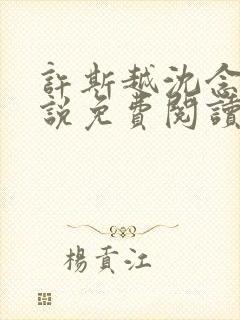 許斯越沈念
說免費閱讀
楊貢江